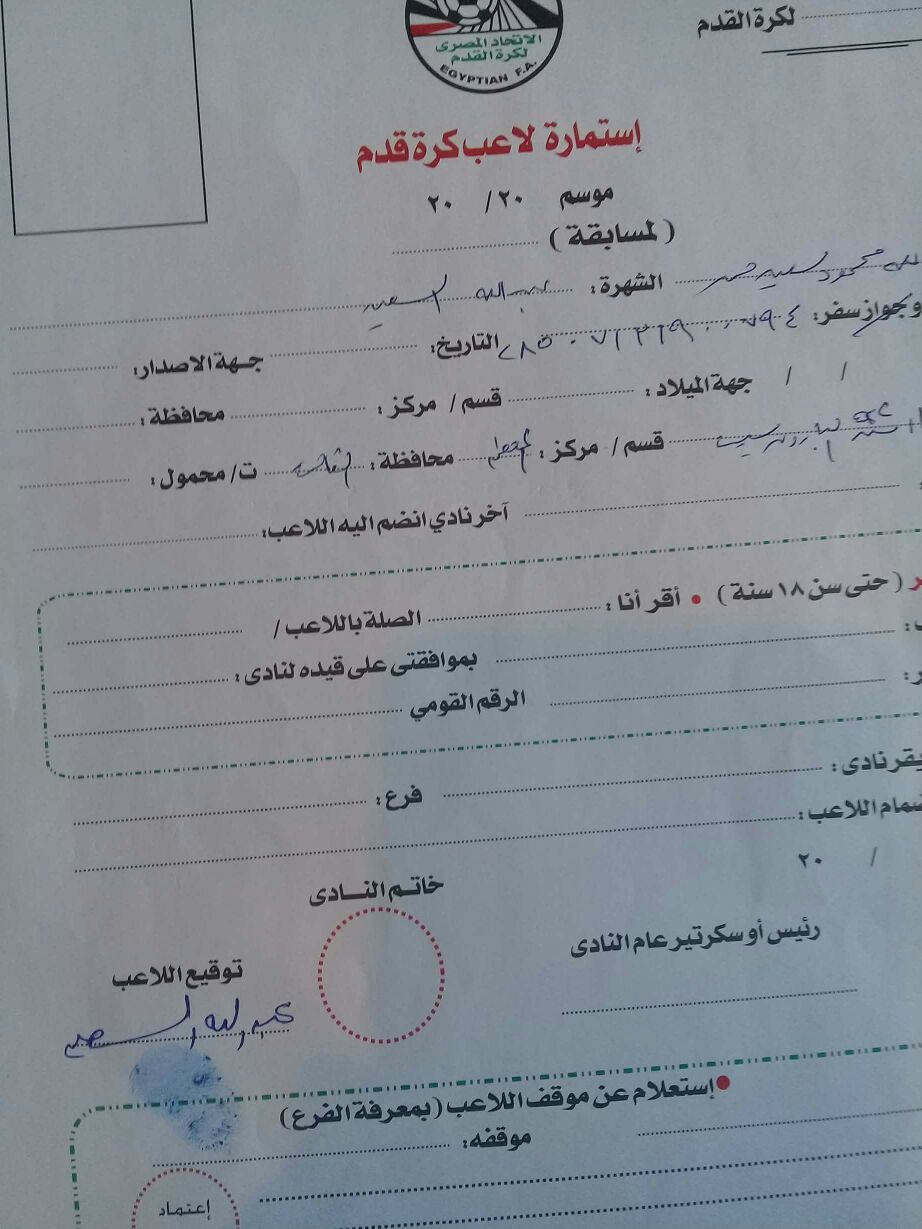 لكرة القدم
الاتحاد المصرى
لكرة القدم
EGYPTIAN F.A.
إستمارة لاعب كرة قدم
موسم ٢٠ / ٢٠
( لمسابقة )
محمود سعيد الشهرة : عبد الله السعيد
جواز سفر : التاريخ : جهة الاصدار :
/ / جهة الميلاد : قسم / مركز : محافظة :
قسم / مركز : محافظة : ت / محمول :
آخر نادي انضم اليه اللاعب :
( حتى سن ١٨ سنة ) • أقر أنا : الصلة باللاعب /
بموافقتى على قيده لنادى :
الرقم القومي
يقر نادى : فرع :
اللاعب :
/ ٢٠
خاتم النادى
رئيس أو سكرتير عام النادى
توقيع اللاعب
عبد الله السعيد
• إستعلام عن موقف اللاعب ( بمعرفة الفرع )
موقفه :
إعتماد